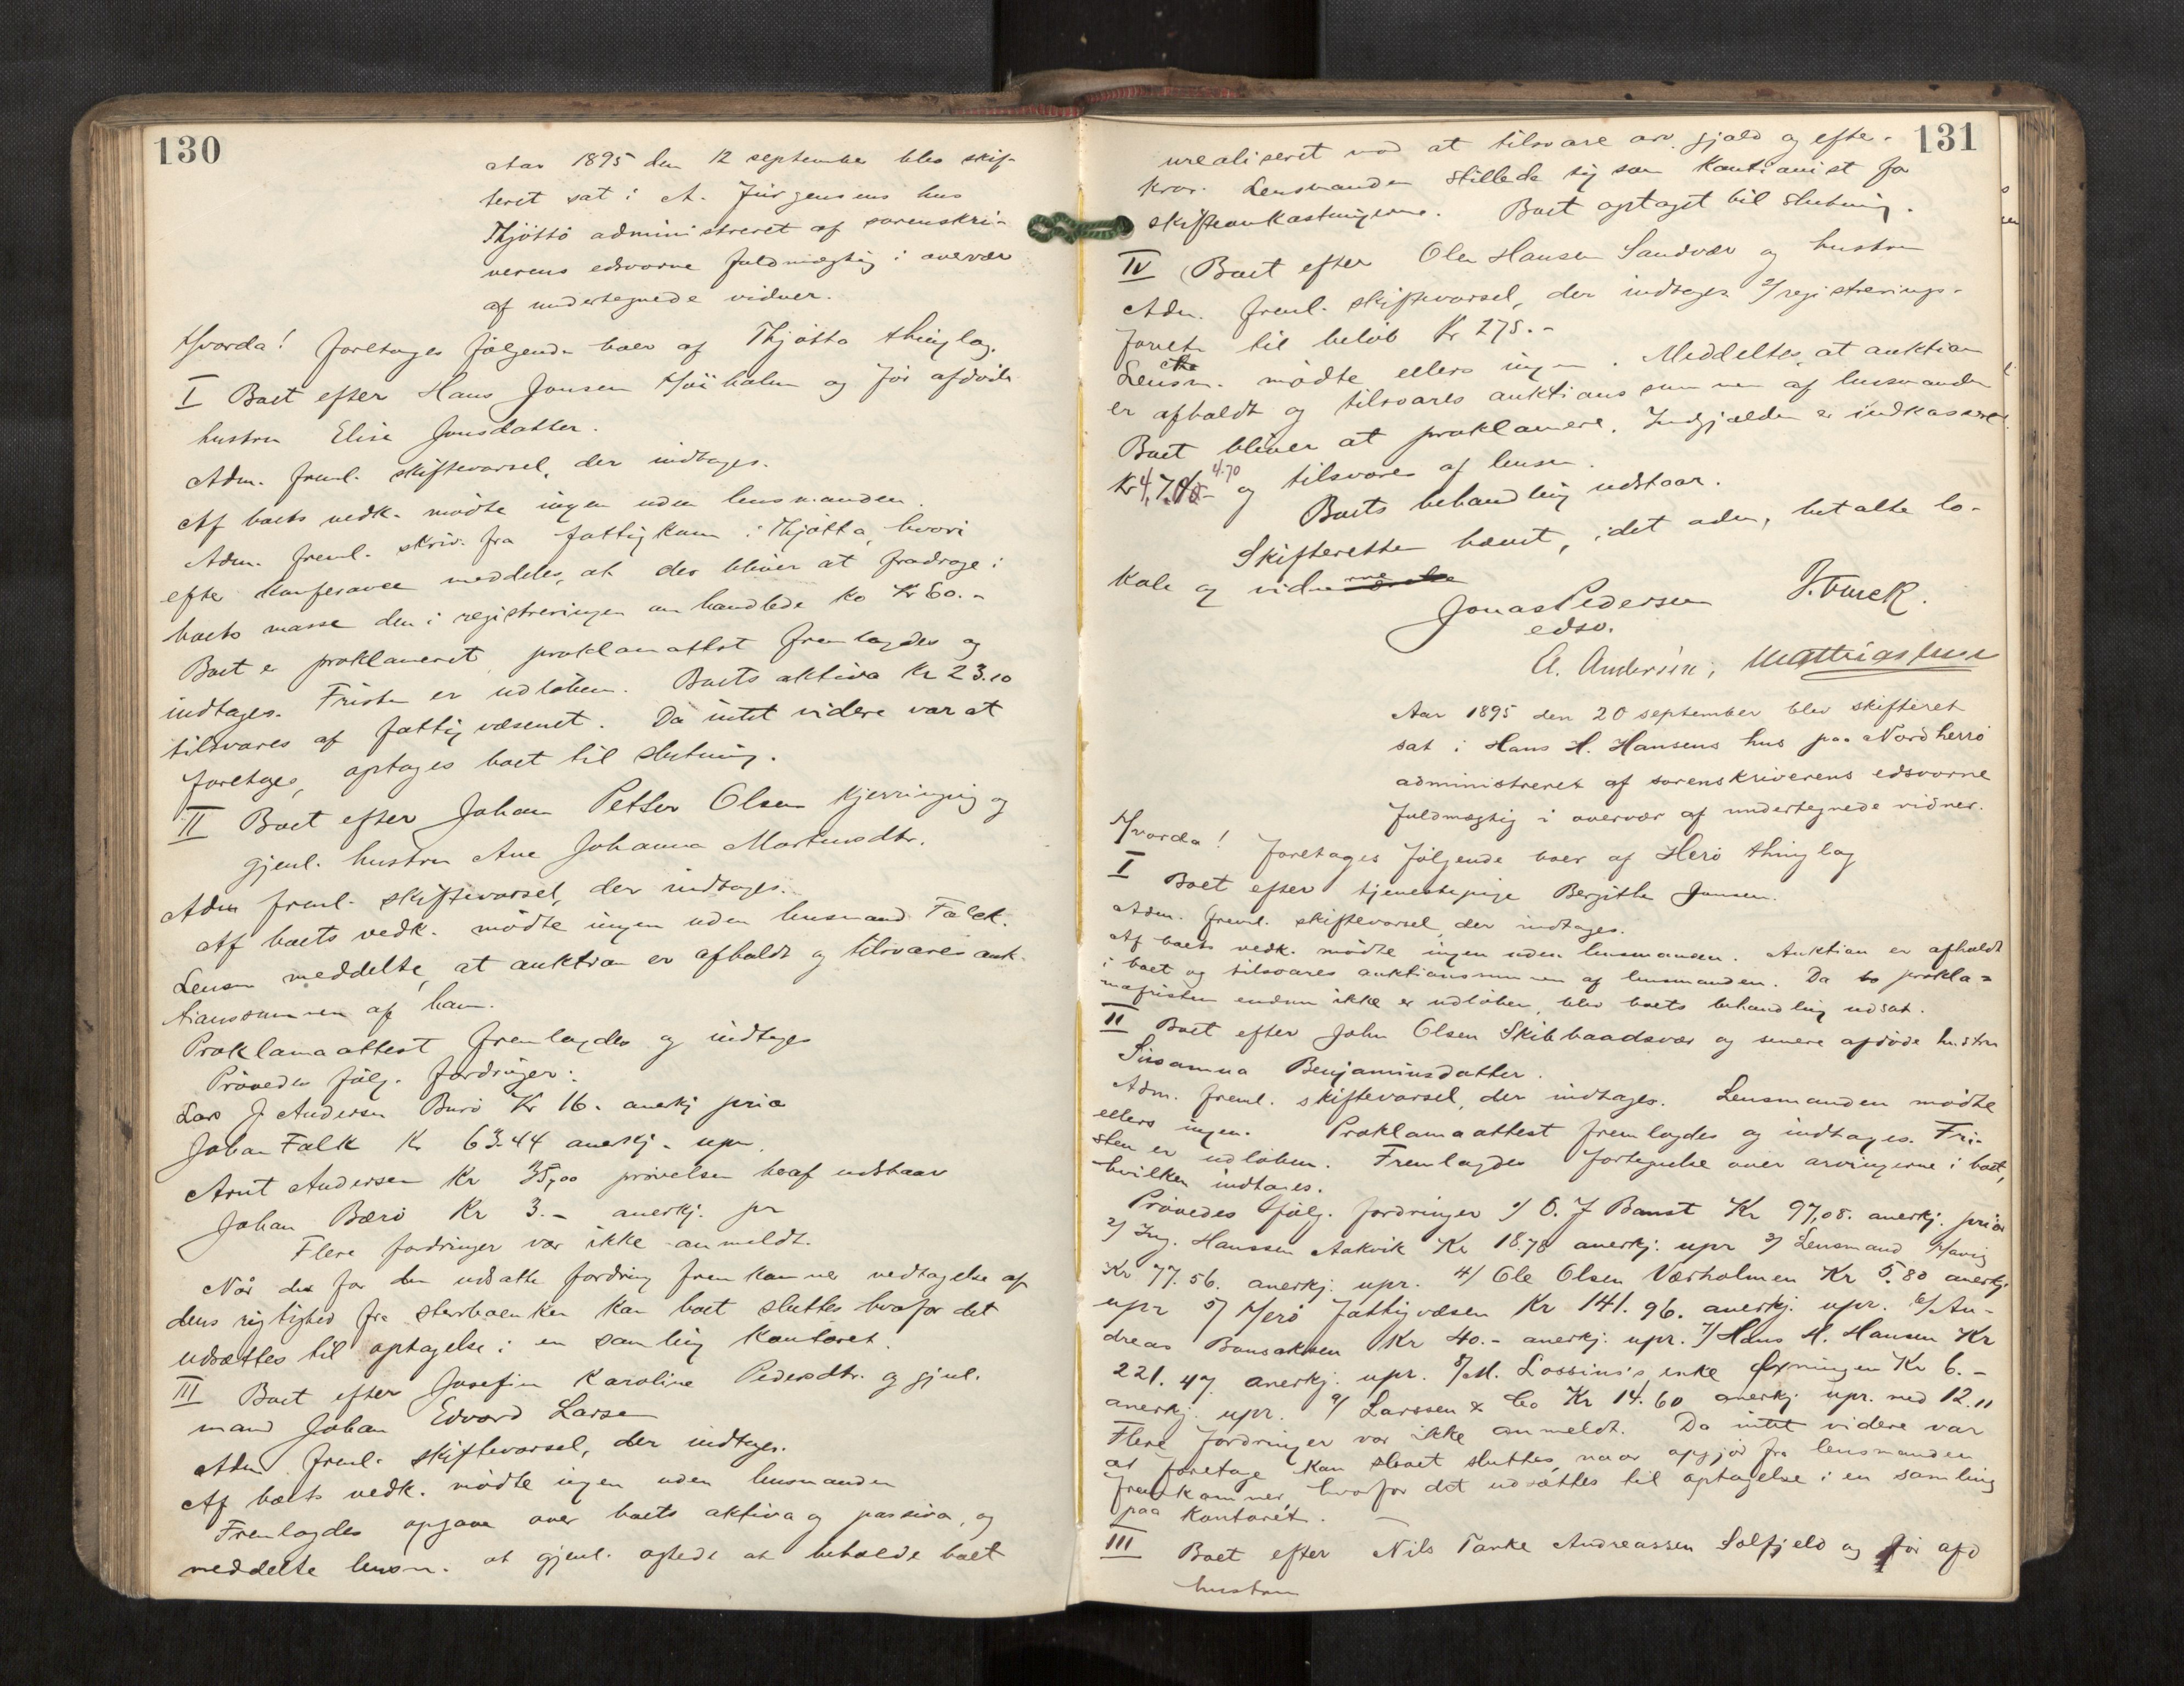 130
Aar 1895 den 12 september blev skif-
teret sat i A. Jürgensens hus
Thjöttö administreret af sorenskri-
verens edsvorne fuldmægtig i overvær
af undertegnede vidner.
Hvorda! foretages følgende boer af Thjøtta thinglag.
I Boet efter Hans Jonsen Høiholm og før afdøde
hustru Elise Jonsdatter.
Adm. freml. skiftevarsel, der indtages.
Af boets vedk. mødte ingen uden lensmanden.
Adm. freml. skriv. fra fattigkom. i Thjøtta, hvori
efter konferance meddeles, at der bliver at fradrage i
boets masse den i registreringen omhandlede ko Kr 60.-
Boet er proklameret, proklamattest fremlagdes og
indtages. Fristen er udløben. Boets aktiva Kr 23.10
tilsvares af fattigvæsenet. Da intet videre var at
foretage, optages boet til slutning.
II Boet efter Johan Petter Olsen Kjerringvig og
gjenl. hustru Ane Johanna Mortensdtr.
Adm freml. skiftevarsel, der indtages.
Af boets vedk. mødte ingen uden lensmand Falck.
Lensm meddelte, at auktion er afholdt og tilsvares auk-
tionssummen af ham.
Proklamaattest fremlagdes og indtages
Prövedes følg. fordringer:
Lars J Andersen Burö Kr 16. anerkj pria
Johan Falk Kr 63.44 anerkj. upr.
Arnt Andersen Kr 35,00 prøvelsen heraf udstaar
Johan Bærö Kr 3.- anerkj. pr
Flere fordringer var ikke anmeldt.
Når der for den udsatte fordring fremkommer vedtagelse af
dens rigtighed fra sterboenken kan boet sluttes hvorfor det
udsættes til optagelse i en samling kontoret.
III Boet efter Josefine Karoline Pedersdtr. og gjenl.
mand Johan Edvard Larsen
Adm. freml. skiftevarsel, der indtages.
Af boets vedk. mødte ingen uden lensmanden
Fremlagdes opgave over boets aktiva og passiva, og
meddelte lensm. at gjenl. agtede at beholde boet
131
urealiseret mod at tilsvare arv. gjæld og efter-
krav. Lensmanden stillede sig som kautionist for
skifteomkostningerne. Boet optaget til slutning.
IV Boet efter Ole Hansen Sandvær og hustru
Adm. freml. skiftevarsel, der indtages 2/ registrerings-
forretn til beløb Kr 275.-
Lensm. mødte ellers ingen. Meddeltes, at auktion
er afholdt og tilsvares auktionssummen af lensmanden
Boet bliver at proklamere. Indgjælden er indkasseret
Kr 4.70 og tilsvares af lensm.
Boets behandling udstaar.
Skifteretten hævet, idet adm. betalte lo-
kale og vidnerne
Jonas Pedersen J. Falck.
edsv.
A. Andersen, Matthiassen
Aar 1895 den 20 september blev skifteret
sat i Hans H. Hansens hus paa Nordherrö
administreret af sorenskriverens edsvorne
fuldmægtig i overvær af undertegnede vidner.
Hvorda! foretages følgende boer af Herö thinglag
I Boet efter tjenestepige Bergitte Jansen.
Adm. freml. skiftevarsel, der indtages.
Af boets vedk. mødte ingen uden lensmanden. Auktion er afholdt
i boet og tilsvares auktionssummen af lensmanden. Da prokla-
mafristen endnu ikke er udløben, blev boets behandling udsat.
II Boet efter John Olsen Skibbaadsvær og senere afdøde hustru
Susanna Benjaminsdatter.
Adm. freml. skiftevarsel, der indtages. Lensmanden mødte
ellers ingen. Proklamaattest fremlagdes og indtages. Fri-
sten er udløben. Fremlagdes fortegnelse over arvingerne i boet,
hvilken indtages.
Prövedes følg. fordringer 1/ O. J Banst Kr 97,08. anerkj. prior
2/ Ing. Hanssen Aakvik Kr 18.78 anerkj. upr 3/ Lensmand Havig
Kr 77.56. anerkj. upr. 4/ Ole Olsen Værholmen Kr 5.80 anerkj.
upr 5/ Herö fattigvæsen Kr 141.96. anerkj. upr. 6/ An-
dreas Bonsaksen Kr 40.- anerkj. upr. 7/ Hans H. Hansen Kr
221.47 anerkj. upr. 8/ M. Lossius's enke Kr 6.-
anerkj. upr. 9/ Larssen & Co Kr 14.60 anerkj upr. med 12.11
Flere fordringer var ikke anmeldt. Da intet videre var
at foretage kan boet sluttes, naar opgjör fra lensmanden
fremkommer, hvorfor det udsættes til optagelse i en samling
paa kontoret.
III Boet efter Nils Tanke Andreassen Solfjeld og før afd
hustru